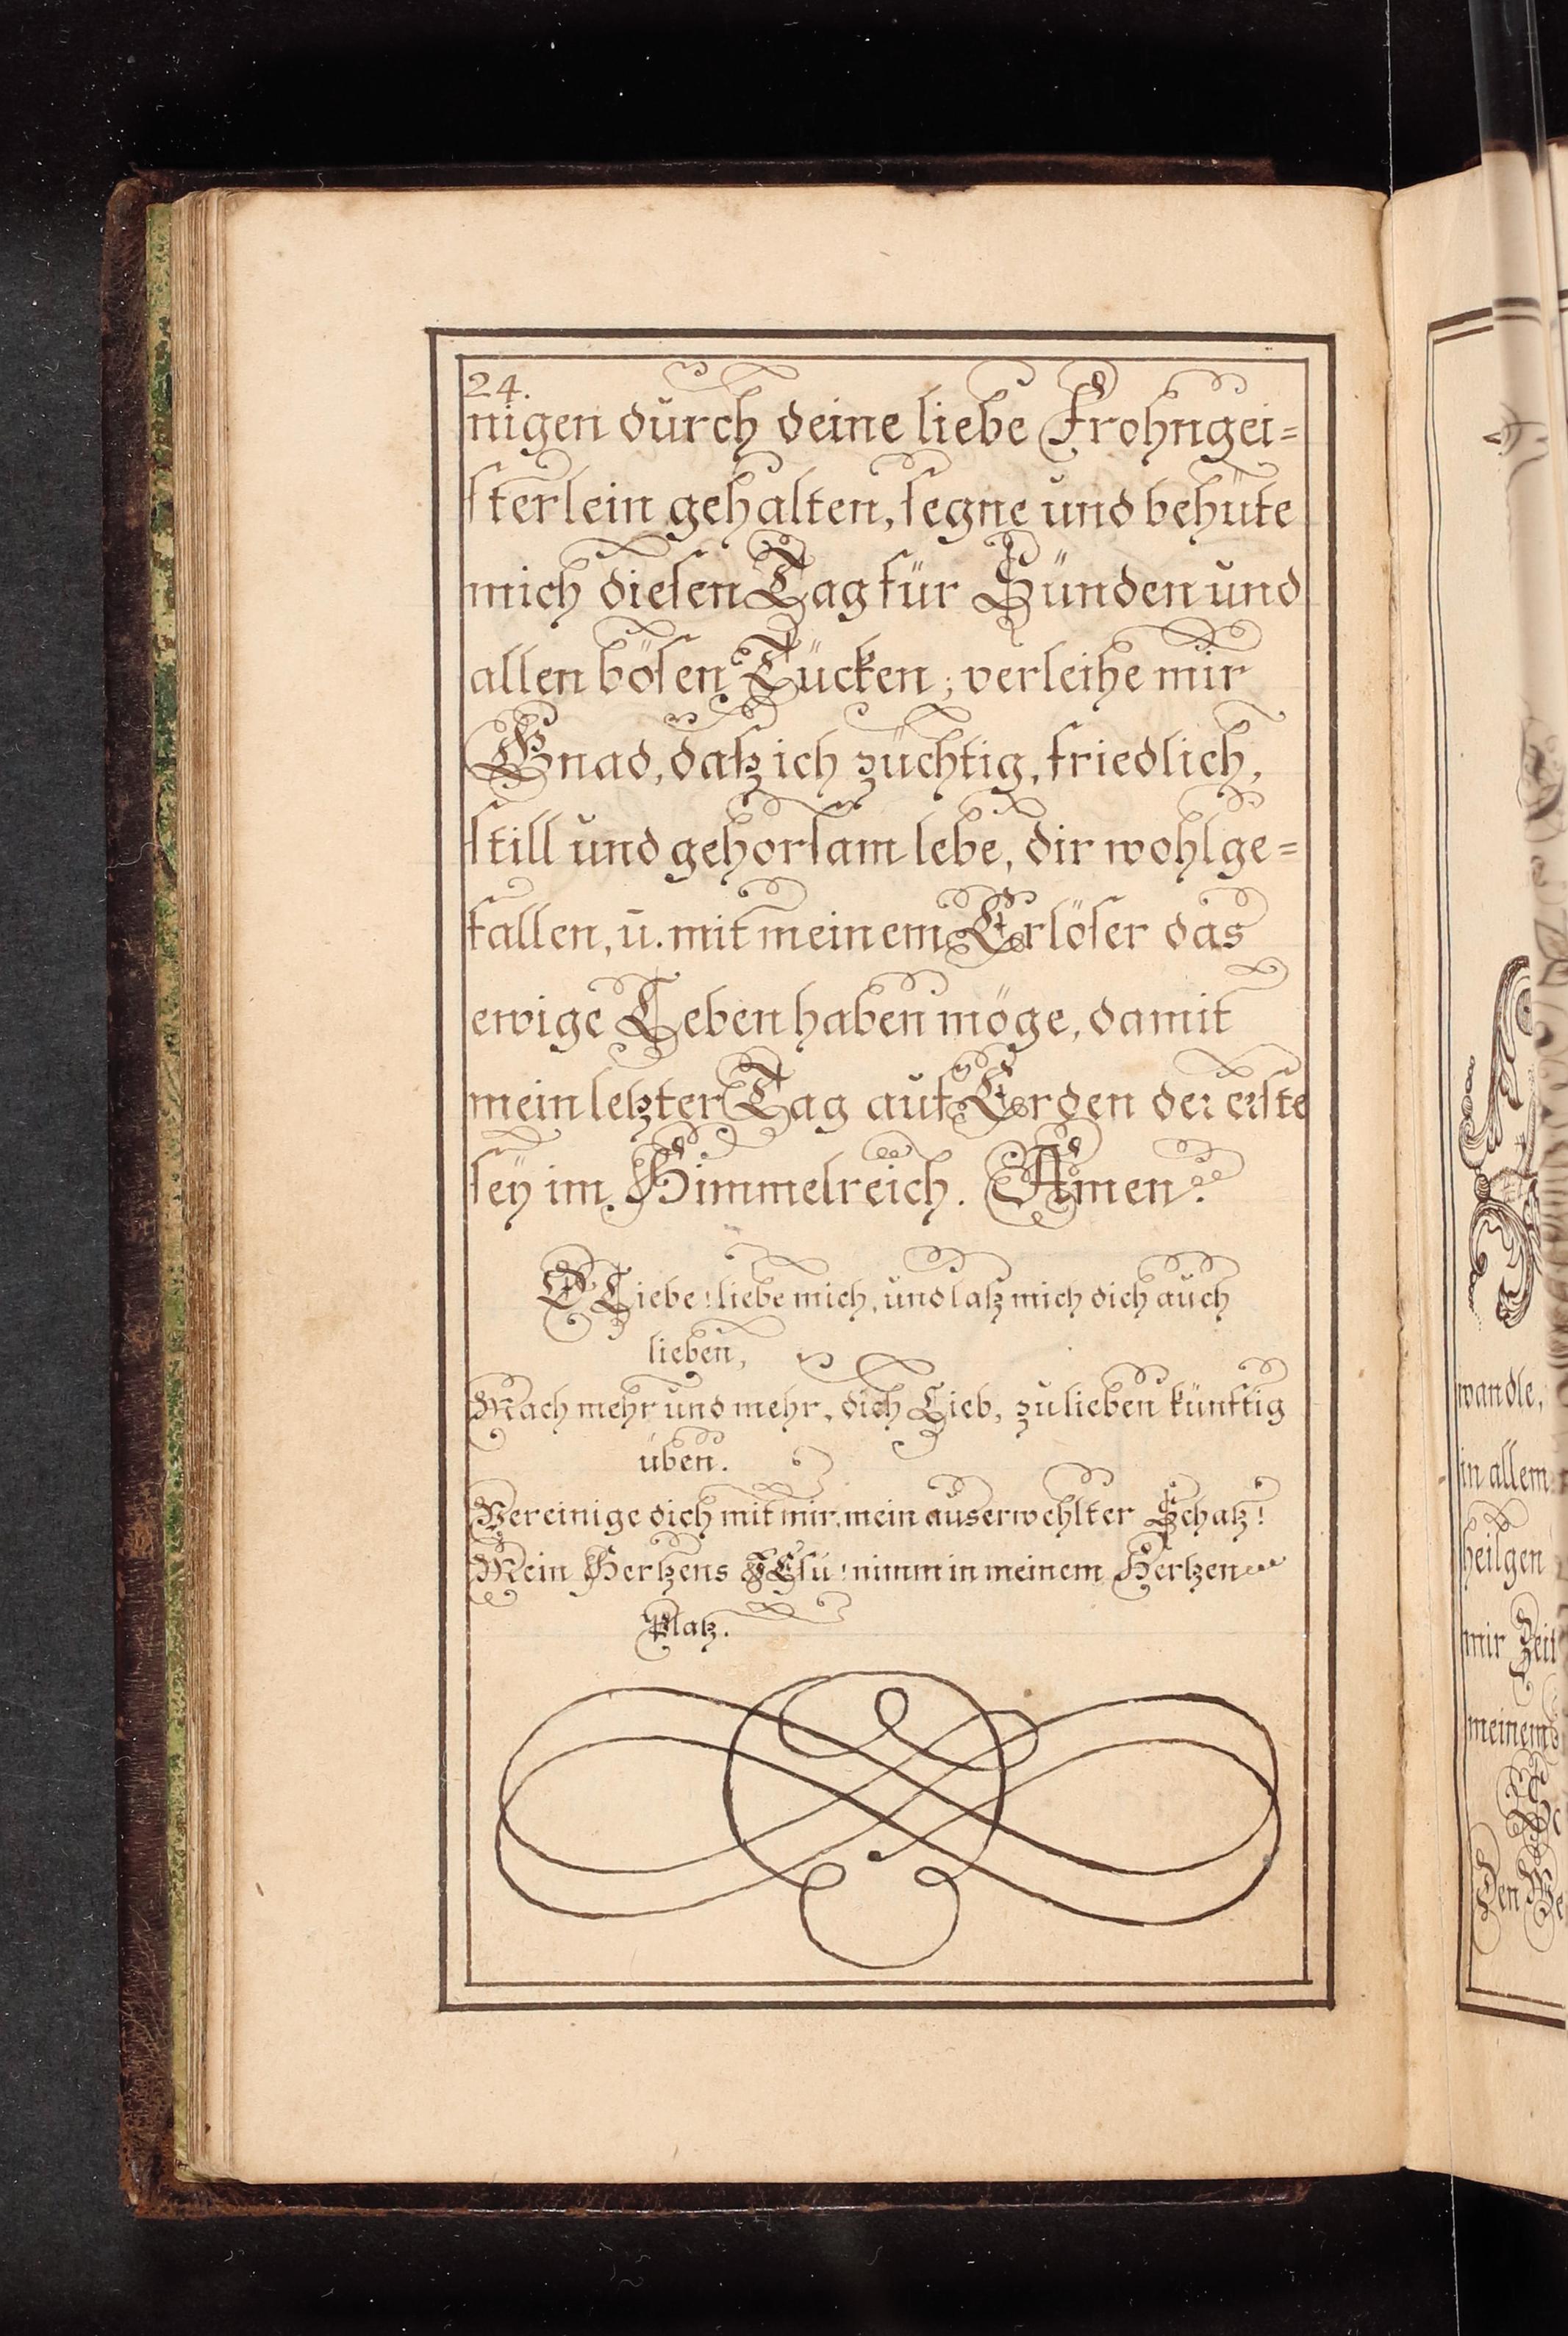 24.
nigen durch deine liebe Frohngei=
ſterlein gehalten, ſegne und behüte
mich dieſen Tag für Sünden und
allen böſen Tücken; verleihe mir
Gnad, daß ich züchtig, friedlich,
ſtill und gehorſam lebe, dir wohlge=
fallen, ū. mit meinem Erlöſer das
ewige Leben haben möge, damit
mein letzter Tag auf Erden der erſte
ſeÿ im Himmelreich. Amen.
O Liebe! liebe mich, und laß mich dich auch
lieben,
Mach mehr und mehr, dich Lieb, zu lieben künftig
üben.
Vereinige dich mit mir, mein auserwehlter Schatz!
Mein Hertzens JEſu! nimm in meinem Hertzen
Platz.
wandle,
in allem
heilgen
mir Zeit
meinem